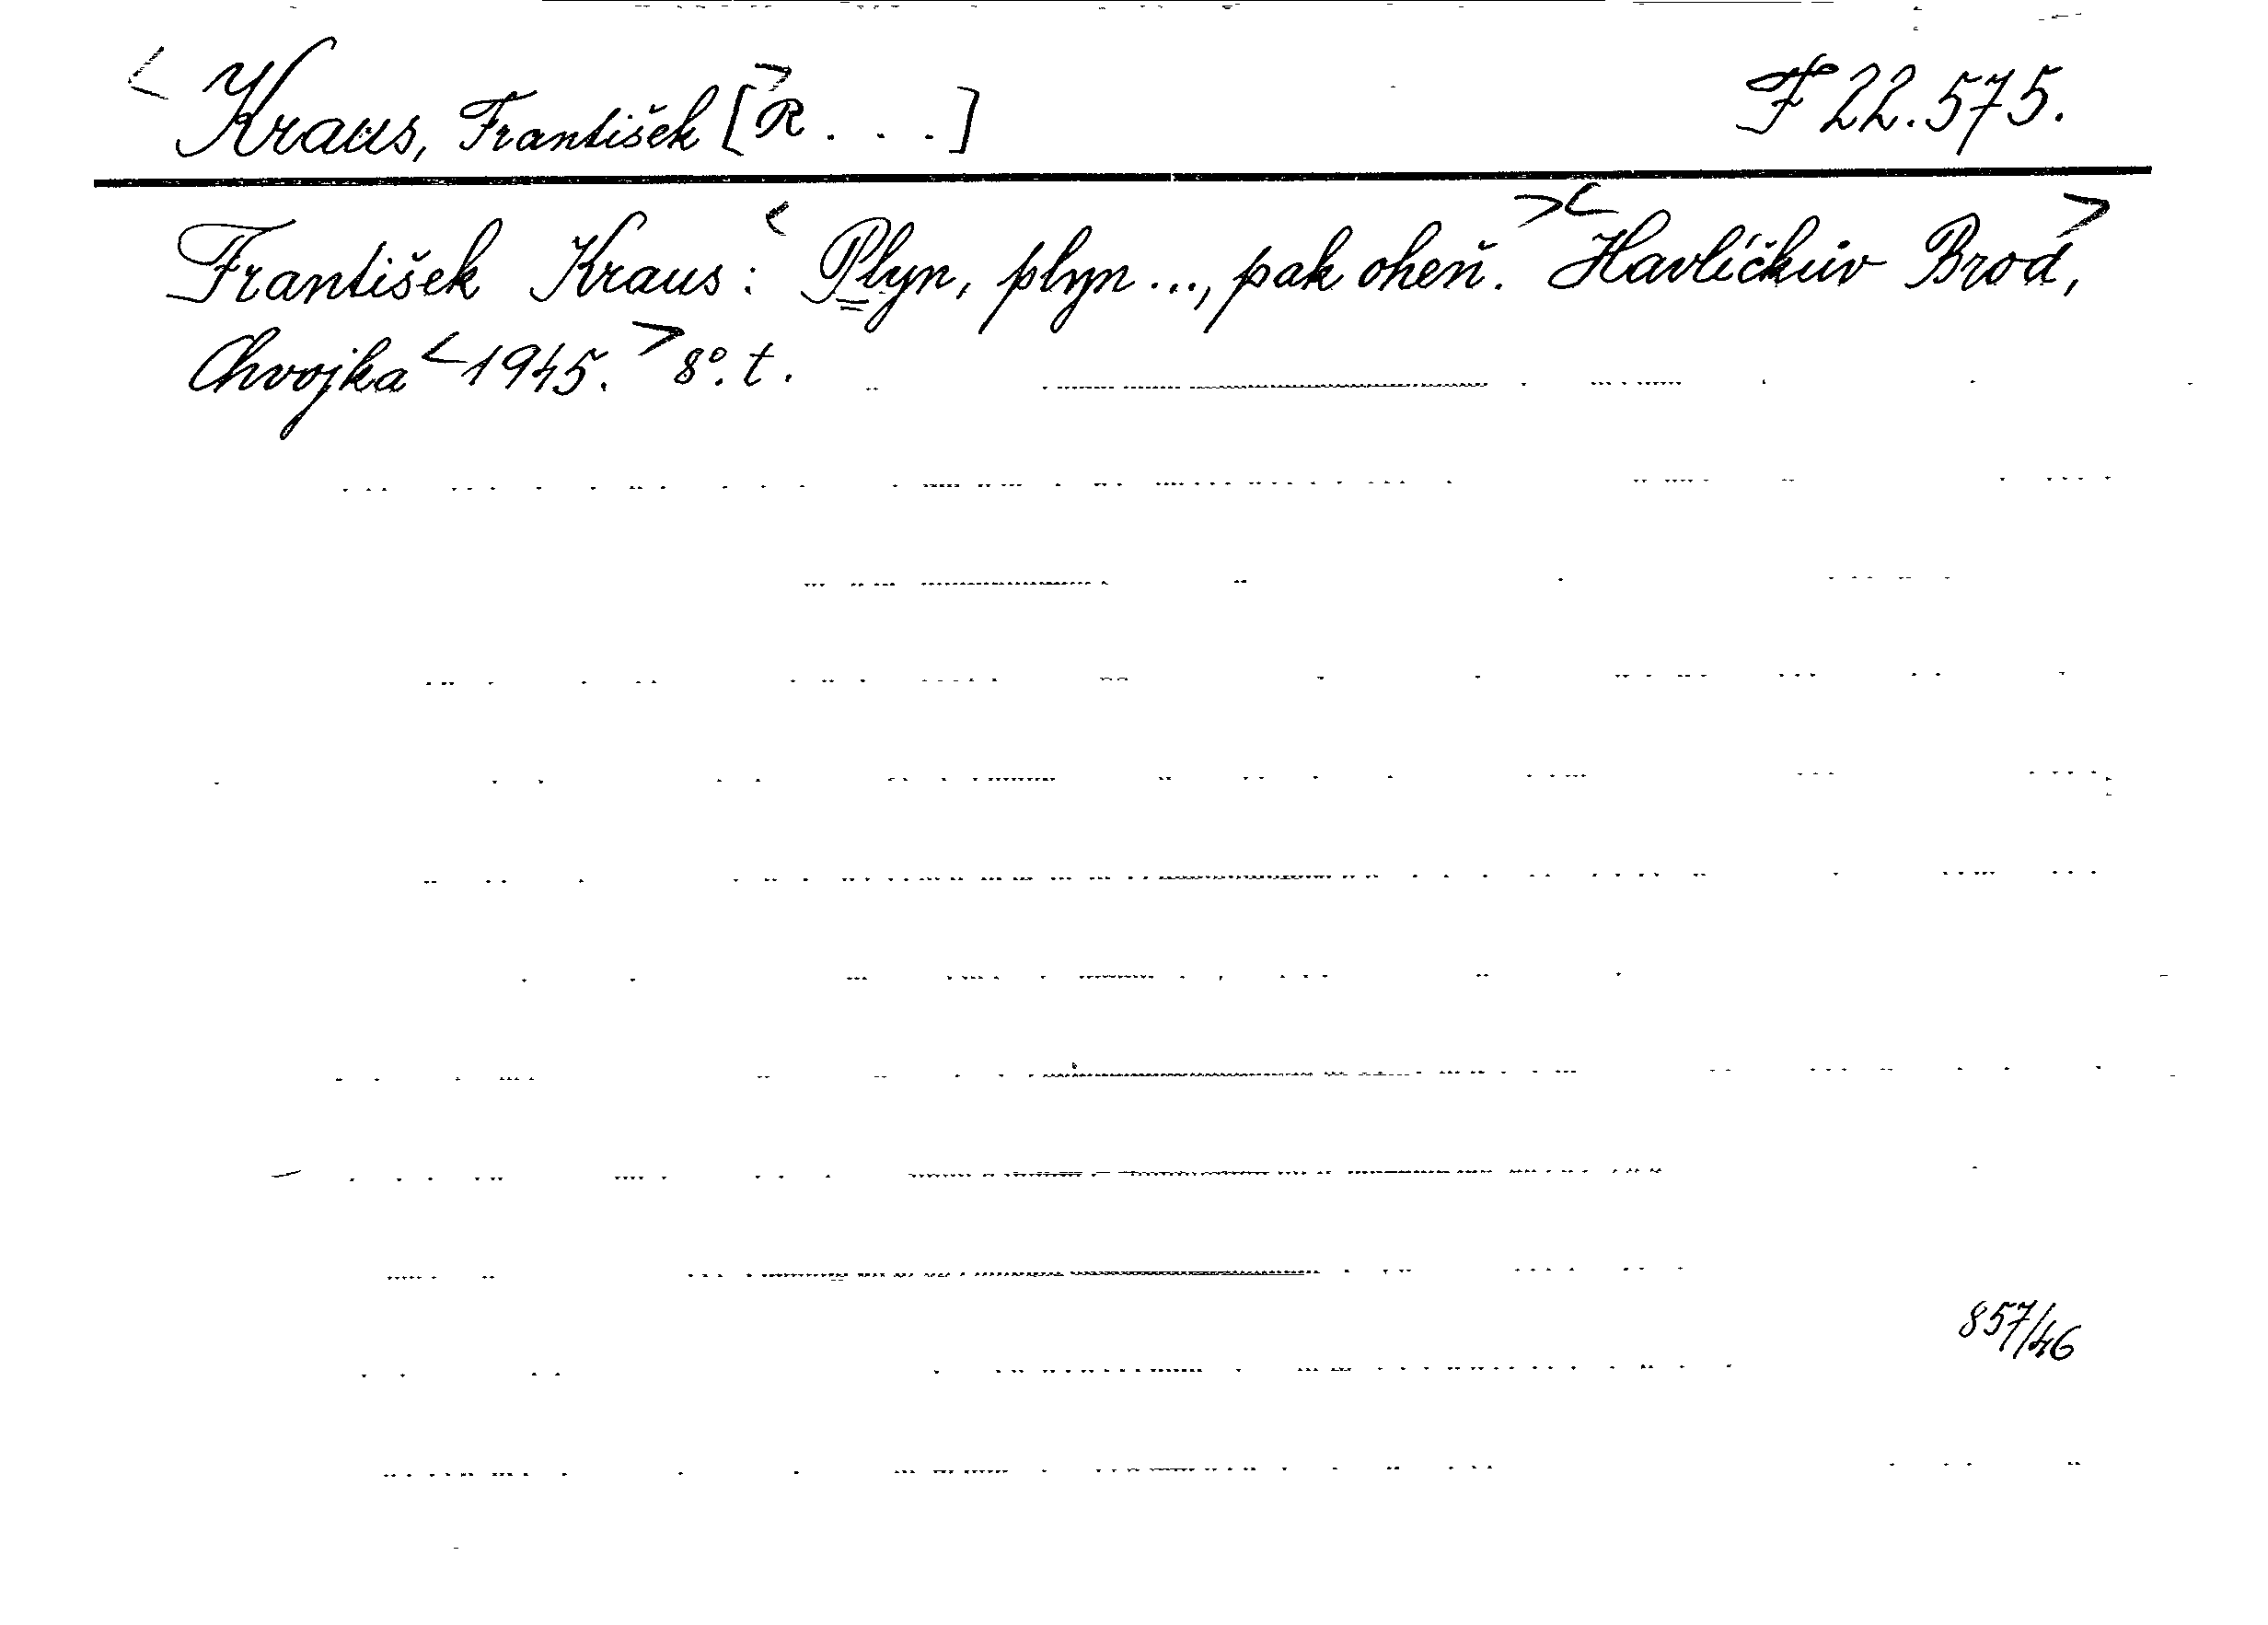 < Kraus, František [R>. . .] F 22.575.
František Kraus: <Plyn, plyn..., pak oheň.> <Havlíčkův Brod,>
Chvojka <1945.> 8°. t.
857/46